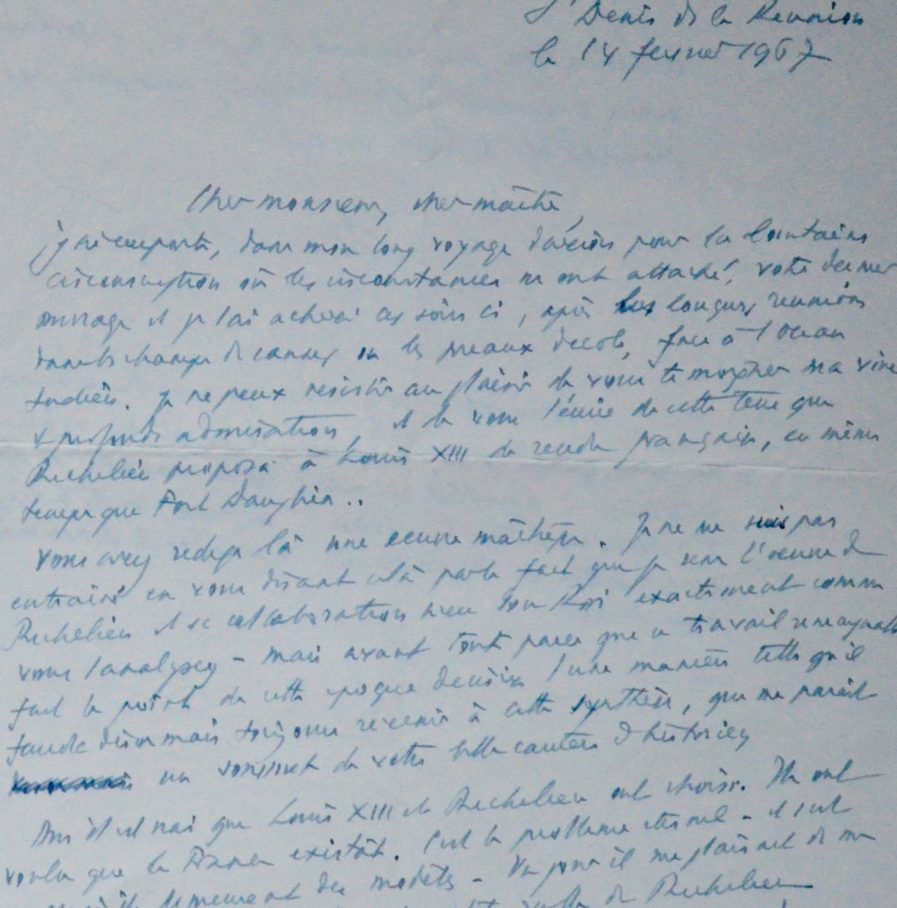 St Denis de la Réunion
le 14 février 1967
Cher monsieur, cher maître,
j'ai emporté, dans mon long voyage d'avion pour la lointaine
circonscription où les circonstances m'ont attaché, votre dernier
ouvrage et je l'ai achevé ces soirs ci, après les longues réunions
dans les champs de cannes ou les préaux d'école, face à l'Océan
Indien. Je ne peux résister au plaisir de vous témoigner ma vive
& profonde admiration et de vous l'écrire de cette terre que
Richelieu proposa à Louis XIII de rendre française, en même
temps que Fort Dauphin..
Vous avez rédigé là une oeuvre maîtresse. Je ne me suis pas
entraîné en vous disant cela par le fait que je vois l'oeuvre de
Richelieu et sa collaboration avec son Roi exactement comme
vous l'analysez - mais avant tout parce que ce travail remarquable
fait le point de cette époque décisive d'une manière telle qu'il
faudra désormais toujours revenir à cette synthèse, qui me paraît
un sommet de votre belle carrière d'historien
Oui il est vrai que Louis XIII et Richelieu ont choisi. Ils ont
voulu que la France existât. C'est le problème éternel - et ils
demeurent des modèles - Un jour il me plairait de
de Richelieu